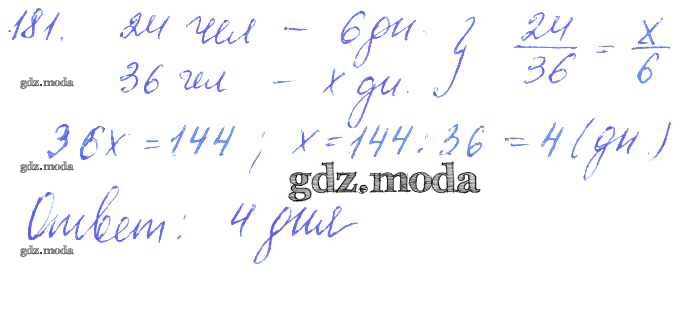 181. 24 чел – 6 дн. } 24/36 = x/6
gdz.moda 36 чел – x дн.
36x = 144 ; x = 144 : 36 = 4 (дн.)
gdz.moda
gdz.moda
Ответ: 4 дня
gdz.moda